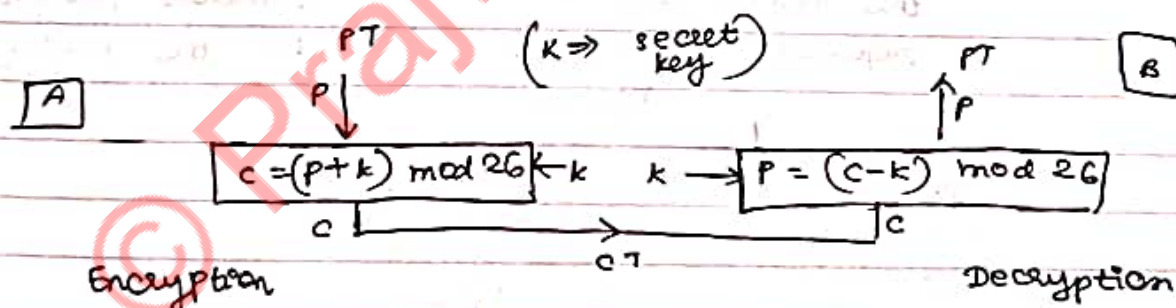 © Praj
PT (K ⇒ secret key) PT
A P P B
C = (P + K) mod 26 ← K K → P = (C - K) mod 26
C C
CT
Encryption Decryption